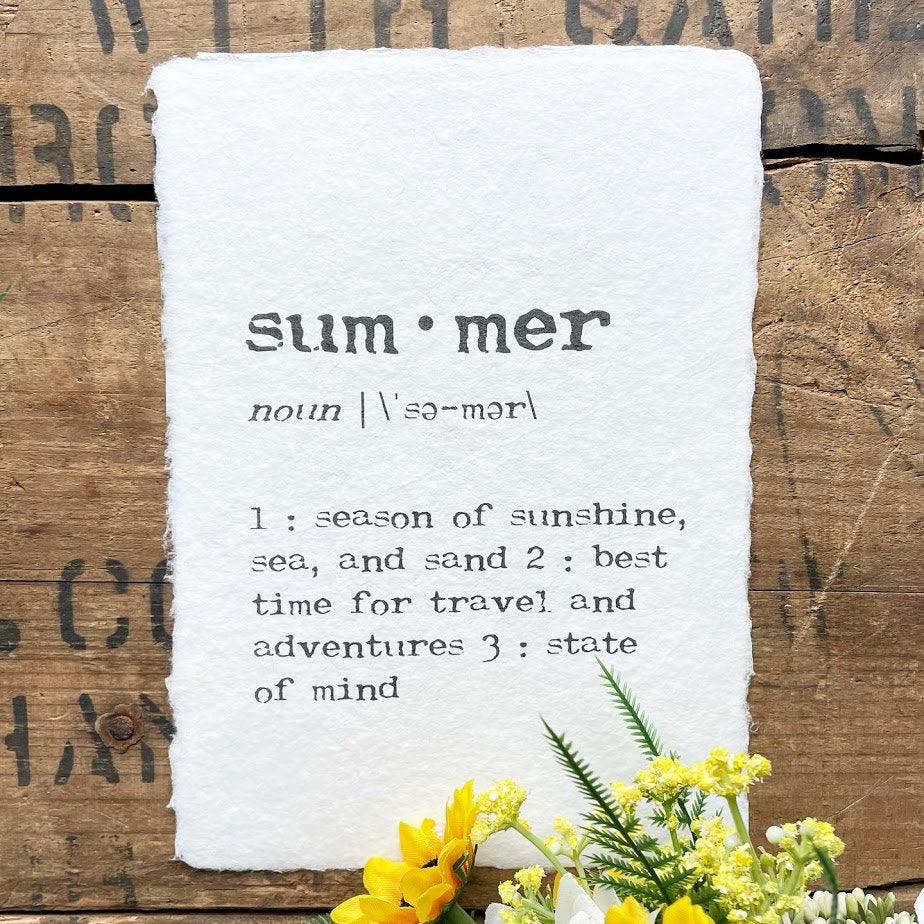 WITH CAMI
sum•mer
noun | \ˈsə-mər\
1 : season of sunshine,
sea, and sand 2 : best
time for travel and
adventures 3 : state
of mind